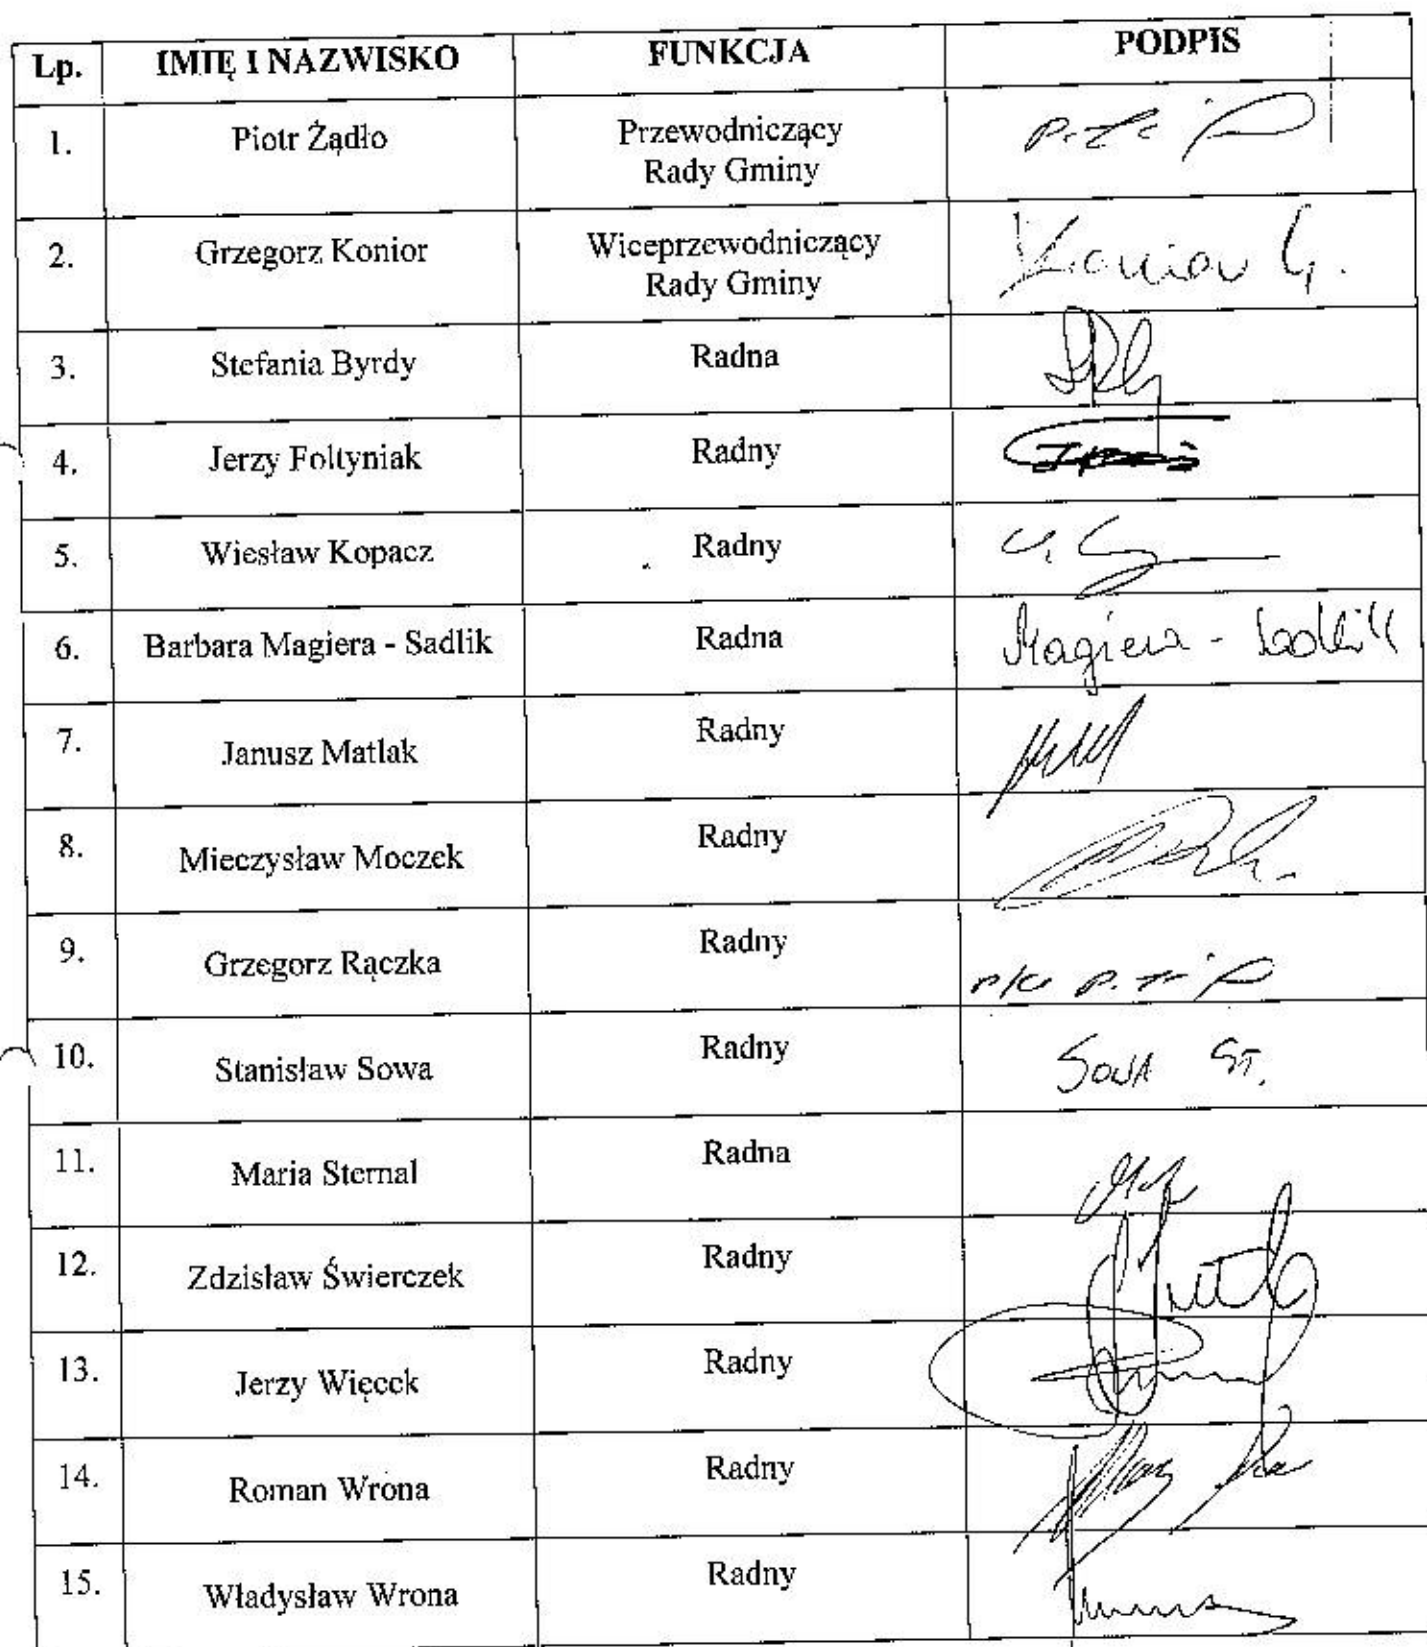 Lp. IMIĘ I NAZWISKO FUNKCJA PODPIS
1. Piotr Żądło Przewodniczący
Rady Gminy
2. Grzegorz Konior Wiceprzewodniczący Konior G.
Rady Gminy
3. Stefania Byrdy Radna
4. Jerzy Foltyniak Radny
5. Wiesław Kopacz Radny
6. Barbara Magiera - Sadlik Radna Magiera - Sadlik
7. Janusz Matlak Radny
8. Mieczysław Moczek Radny
9. Grzegorz Rączka Radny
10. Stanisław Sowa Radny SOWA ST.
11. Maria Sternal Radna
12. Zdzisław Świerczek Radny
13. Jerzy Więcek Radny
14. Roman Wrona Radny
15. Władysław Wrona Radny